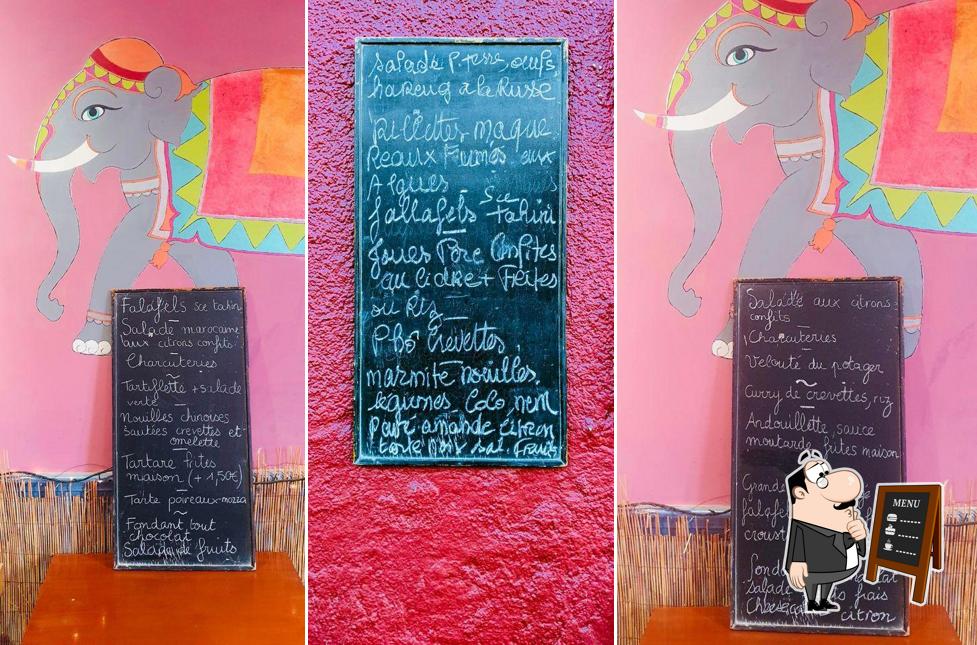 Falafels sce tahin
Salade marocaine
aux citrons confits
Charcuteries
Tartiflette + salade
verte
Nouilles chinoises
sautées crevettes et
omelette
Tartare frites
maison (+ 1,50€)
Tarte poireaux-mozza
Fondant tout
chocolat
Salade de fruits
Salade oeufs,
hareng à la Russe
Rillettes maque
Reaux Fumés aux
Algues
fallafels Sce tahini
Joues Porc Confites
au cidre + Frites
ou Riz
Pbs Crevettes,
marmite nouilles,
légumes Coco, nem
amande citron
Salade aux citrons
confits
Charcuteries
Velouté du potager
Curry de crevettes, riz
Andouillette, sauce
moutarde, frites maison
Grande
falafe
croust
fond at
salade frais
Cheese citron
MENU